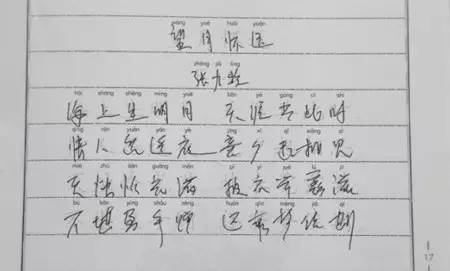 wàng yuè huái yuǎn
望月怀远
zhāng jiǔ líng
张九龄
hǎi shàng shēng míng yuè tiān yá gòng cǐ shí
海上生明月 天涯共此时
qíng rén yuàn yáo yè jìng xī qǐ xiāng sī
情人怨遥夜 竟夕起相思
miè zhú lián guāng mǎn pī yī jué lù zī
灭烛怜光满 披衣觉露滋
bù kān yíng shǒu zèng huán qǐn mèng jiā qī
不堪盈手赠 还寝梦佳期
17